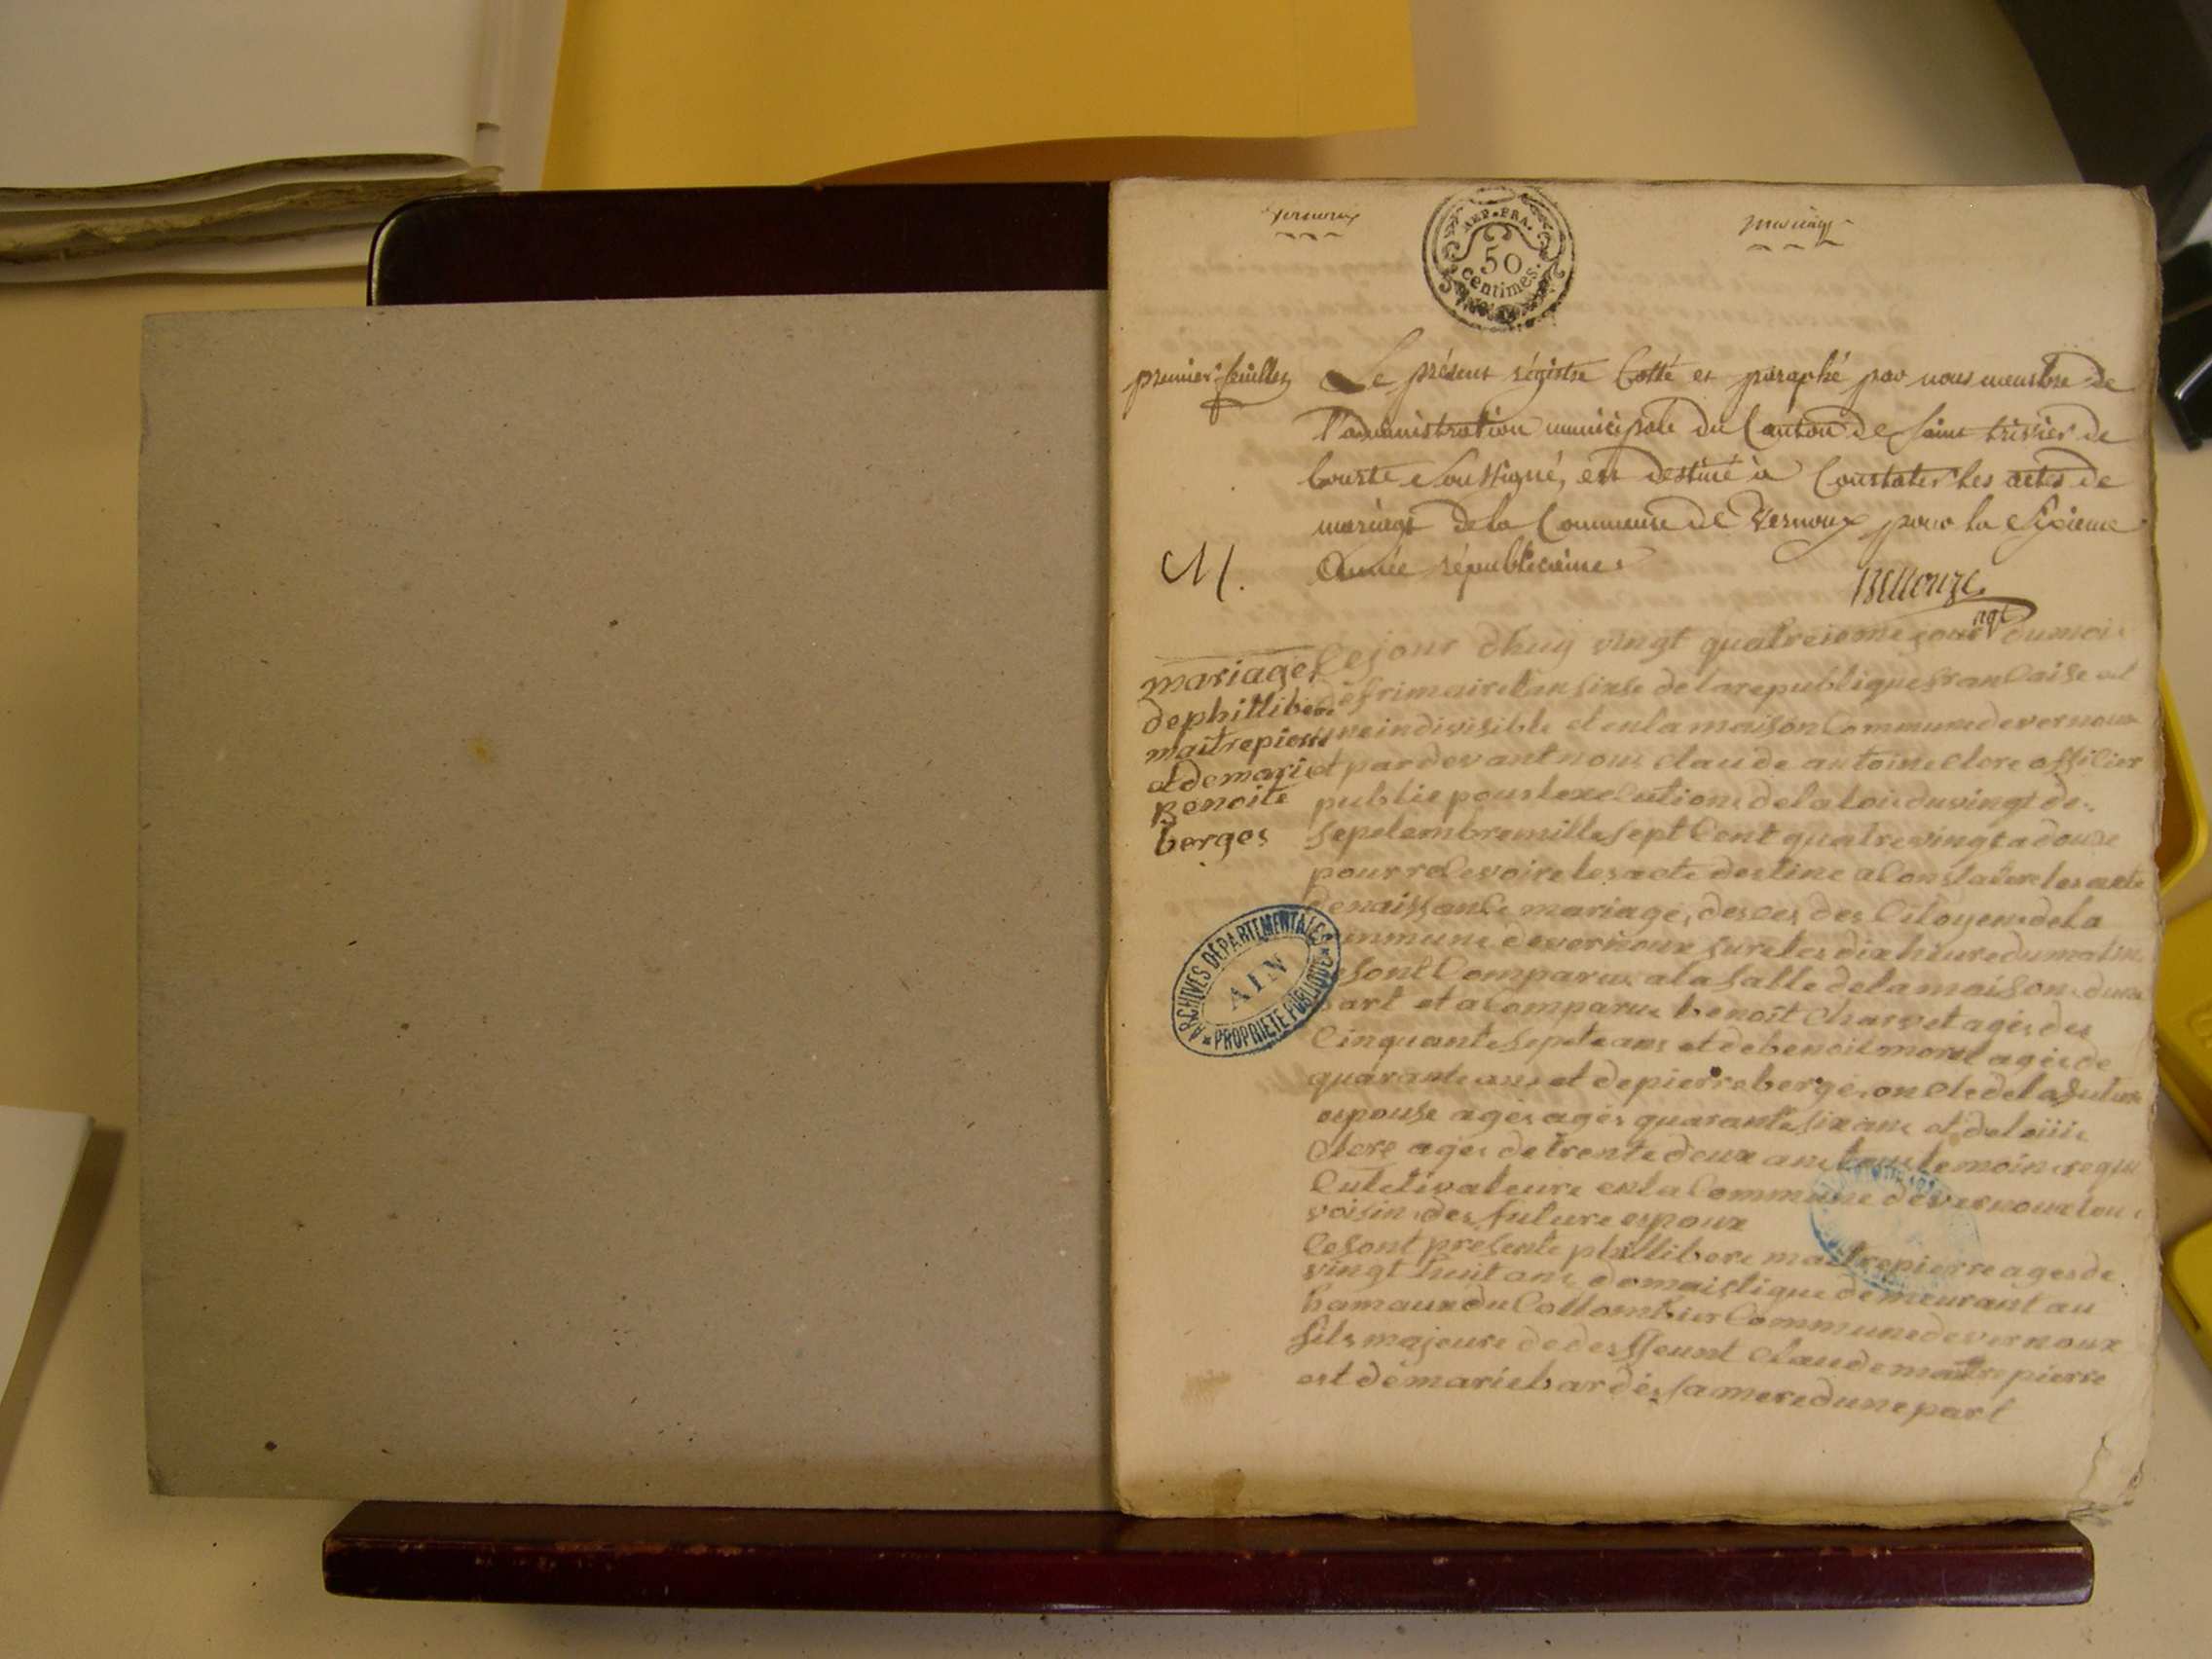 Vernoux
mariage
REP. FRA.
50
centimes.
premier feuillet
Le présent régistre Cotté et paraphé par nous membre de
l'administration municipale du Canton de Saint trivier de
Courte Soussigné, est destiné à Constater les actes de
mariage de la Commune de Vernoux pour la Sixieme
Année républicaine.
M.
agt
mariages
de phillibere
maitrepierre
et de marie
Benoite
berges
Ce jour dhuy vingt quatreieme jour du mois
de frimaire lan sixse de la republique francaise et
une indivisible et en la maison Commune de vernoux
et par devant nous claude antoine clere officier
public pour lexecution de la loi du vingt de
Septembre mille sept Cent quatre vingt a douse
pour recevoire les acte destine a Constatere les acte
de naissance mariage, desces des Citoyens de la
Commune de vernoux sur les dix heure du matin
se sont Comparus a la salle de la maison dune
part et a Comparus benoit Charvet ages des
Cinquante septe ans et de benoit morel ages de
quarante ans et de pierre berges oncle de la future
espouse ages ages quarante six ans et de
Clere ages de trente deux ans tous temoins requi
Cultivateure en la Commune de vernoux tous
voisin des future espoux
Ce sont presente phillibere maitrepierre ages de
vingt huit ans domaistique demeurant au
hamaux du Collombier Commune de vernoux
fils majeure de deffeunt claude maitrepierre
est de marie bardes sa mere dune part
ARCHIVES DEPARTEMENTALES
AIN
* PROPRIETE PUBLIQUE *